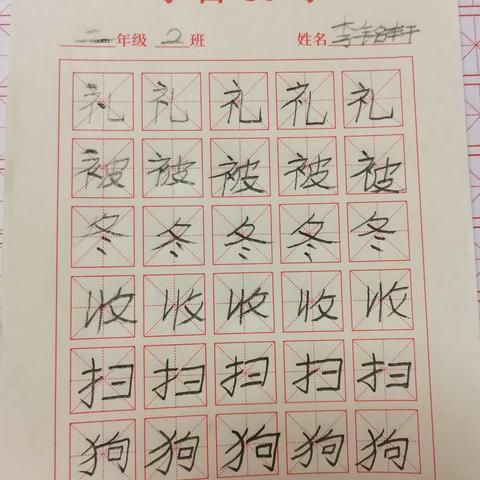 二年级 2 班 姓名 李铭轩
礼 礼 礼 礼 礼
被 被 被 被 被
冬 冬 冬 冬 冬
收 收 收 收 收
扫 扫 扫 扫 扫
狗 狗 狗 狗 狗